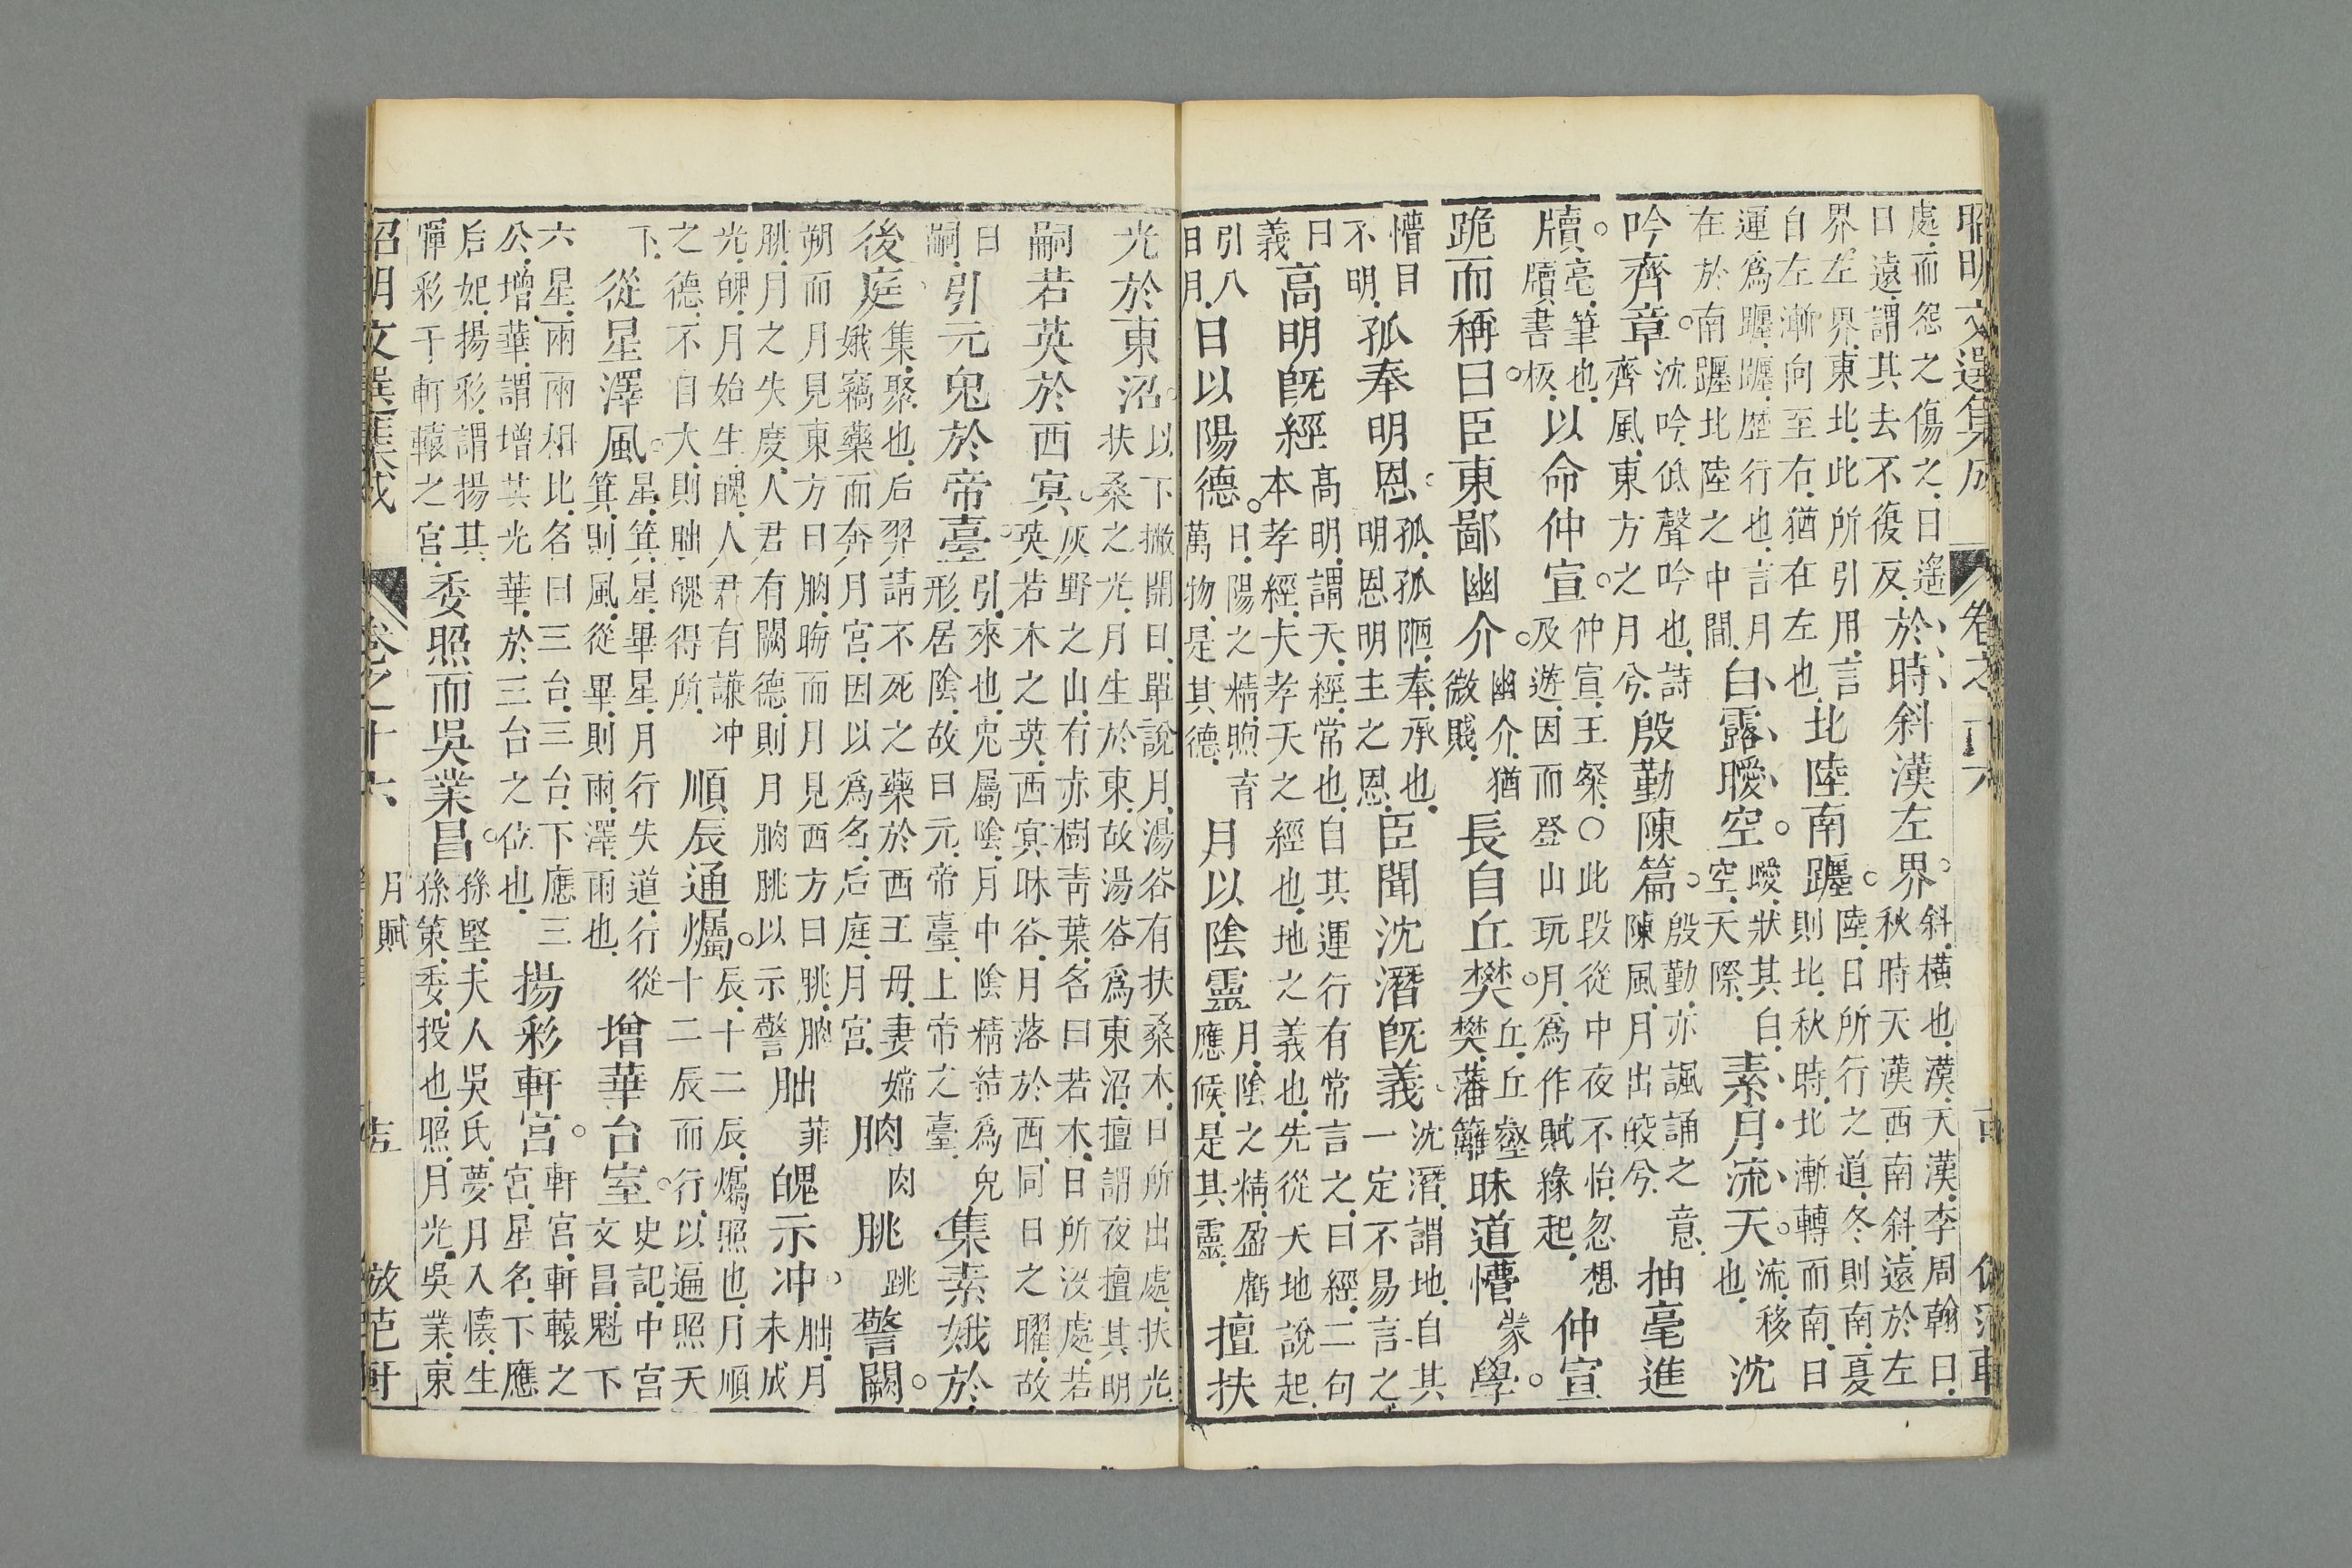 昭明文選集成 卷之十六
處而怨之傷之曰遙曰遠謂其去不復反於時斜漢左界斜橫也漢天漢李周翰曰秋時天漢西南斜遠於左
界左界東北此所引用言自左漸向至右猶在左也北陸南躔陸日所行之道冬則南夏則北秋時北漸轉而南日
運為躔躔歷行也言月在於南躔北陸之中間白露曖空曖狀其白空天際素月流天流移也沈
吟齊章沈吟低聲吟也詩齊風東方之月兮殷勤陳篇殷勤亦諷誦之意陳風月出皎兮抽毫進
牘毫筆也牘書板以命仲宣仲宣王粲○此段從中夜不怡忽想及遊因而登山玩月為作賦緣起仲宣
跪而稱曰臣東鄙幽介幽介猶微賤長自丘樊丘丘壑樊藩籬昧道懵蒙學
懵目不明孤奉明恩孤孤陋奉承也明恩明主之恩臣聞沈潛既義沈潛謂地自其一定不易言之
曰義高明既經高明謂天經常也自其運行有常言之曰經二句本孝經夫孝天之經也地之義也先從天地說起
引八日月日以陽德日陽之精煦育萬物是其德月以陰靈月陰之精盈虧應候是其靈擅扶
光於東沼以下撇開日單說月湯谷有扶桑木日所出處扶光扶桑之光月生於東故湯谷為東沼擅謂夜擅其明
嗣若英於西冥灰野之山有亦樹青葉名曰若木日所沒處若英若木之英西冥昧谷月落於西同日之曜故
曰嗣引元兔於帝臺引來也兔屬陰月中陰精結為兔形居陰故曰元帝臺上帝之臺集素娥於
後庭集聚也后羿請不死之藥於西王母妻嫦娥竊藥而奔月宮因以為名后庭月宮朒肉朓跳警闕
朔而月見東方曰朒晦而月見西方曰朓朒朓月之失度人君有闕德則月朒朓以示警朏菲魄示冲朏月未成
光魄月始生魄人君有謙冲之德不自大則朏魄得所順辰通爥辰十二辰爥照也月順十二辰而行以遍照天
下從星澤風星箕星畢星月行失道行從箕則風從畢則雨澤雨也增華台室史記中宮文昌魁下
六星兩兩相比名曰三台三台下應三公增華謂增其光華於三台之位也揚彩軒宮軒宮軒轅之宮星名下應
后妃揚彩謂揚其輝彩于軒轅之宮委照而吳業昌孫堅夫人吳氏夢月入懷生孫策委投也照月光吳業東
昭明文選集成 卷之十六 月賦